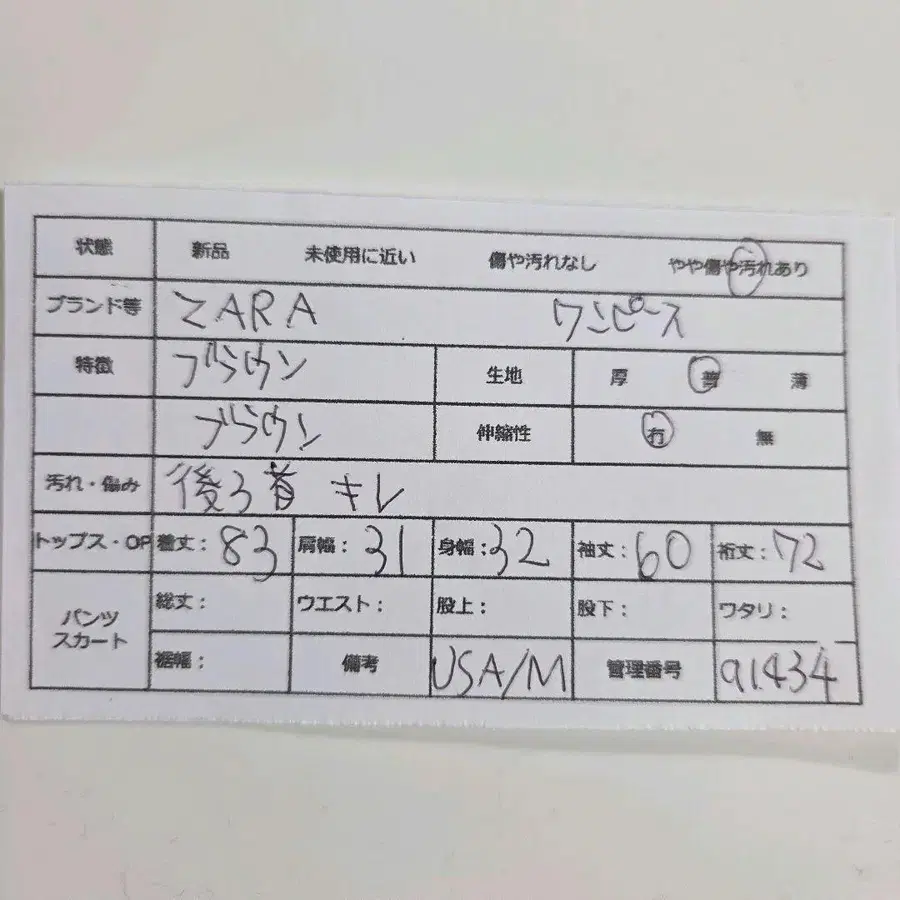 状態 新品 未使用に近い 傷や汚れなし やや傷や汚れあり
ブランド等 ZARA ワンピース
特徴 ブラウン 生地 厚 普 薄
ブラウン 伸縮性 有 無
汚れ・傷み 後ろ首 キレ
トップス・OP 着丈：83 肩幅：31 身幅：32 袖丈：60 裄丈：72
パンツ スカート 総丈： ウエスト： 股上： 股下： ワタリ：
裾幅： 備考 USA/M 管理番号 91434